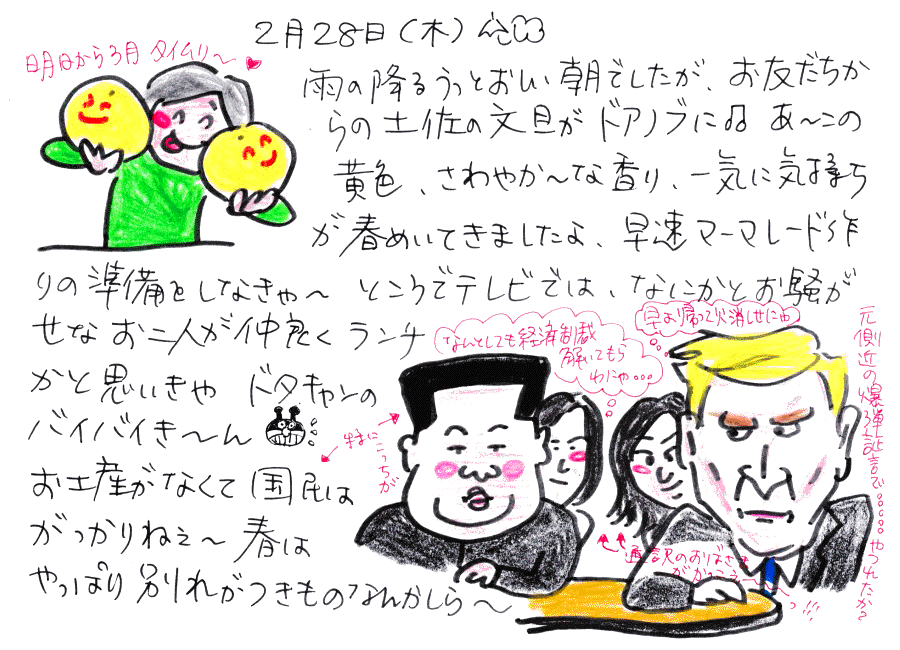 2月28日(木)
明日から3月 タイムリ〜
雨の降るうっとおしい朝でしたが、お友だちか
らの土佐の文旦がドアノブに あ〜この
黄色、さわやか〜な香り、一気に気持ち
が春めいてきましたよ、早速マーマレード作
りの準備をしなきゃ〜 ところでテレビでは、なにかとお騒が
せなお二人が仲良くランチ
かと思いきや ドタキャンの
バイバイき〜ん
お土産がなくて国民は
がっかりねぇ〜 春は
やっぱり別れがつきものなんかしら〜
なんとしても経済制裁
解いてもら
わにゃ...
早よ帰って火消しせにゃ
特にこっちが
元側近の爆弾証言で......やつれたか?
通訳のおばさま
がかっこう〜